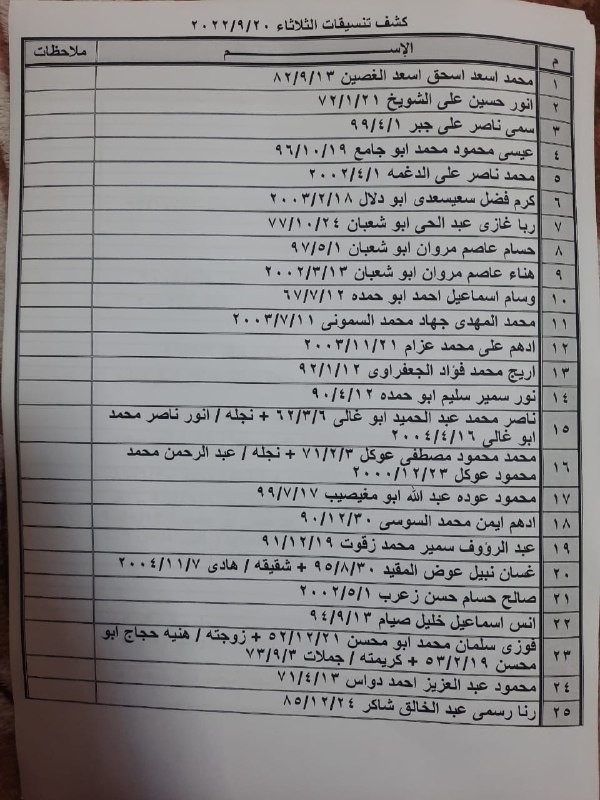 كشف تنسيقات الثلاثاء ٢٠٢٢/٩/٢٠
م الإســــــــم ملاحظات
١ محمد اسعد اسحق اسعد الغصين ٨٢/٩/١٣
٢ انور حسين على الشويخ ٧٢/١/٢١
٣ سمى ناصر على جبر ٩٩/٤/١
٤ عيسى محمود محمد ابو جامع ٩٦/١٠/١٩
٥ محمد ناصر على الدغمه ٢٠٠٢/٤/١
٦ كرم فضل سعيسعدى ابو دلال ٢٠٠٣/٢/١٨
٧ ربا غازى عبد الحى ابو شعبان ٧٧/١٠/٢٤
٨ حسام عاصم مروان ابو شعبان ٩٧/٥/١
٩ هناء عاصم مروان ابو شعبان ٢٠٠٢/٣/١٣
١٠ وسام اسماعيل احمد ابو حمده ٦٧/٧/١٢
١١ محمد المهدى جهاد محمد السمونى ٢٠٠٣/٧/١١
١٢ ادهم على محمد عزام ٢٠٠٣/١١/٢١
١٣ اريج محمد فؤاد الجعفراوى ٩٢/١/١٢
١٤ نور سمير سليم ابو حمده ٩٠/٤/١٢
١٥ ناصر محمد عبد الحميد ابو غالى ٦٢/٣/٦ + نجله / انور ناصر محمد
ابو غالى ٢٠٠٤/٤/١٦
١٦ محمد محمود مصطفى عوكل ٧١/٢/٣ + نجله / عبد الرحمن محمد
محمود عوكل ٢٠٠٠/١٢/٢٣
١٧ محمود عوده عبد الله ابو مغيصيب ٩٩/٧/١٧
١٨ ادهم ايمن محمد السوسى ٩٠/١٢/٣٠
١٩ عبد الرؤوف سمير محمد زقوت ٩١/١٢/١٩
٢٠ غسان نبيل عوض المقيد ٩٥/٨/٣٠ + شقيقه / هادى ٢٠٠٤/١١/٧
٢١ صالح حسام حسن زعرب ٢٠٠٢/٥/١
٢٢ انس اسماعيل خليل صيام ٩٤/٩/١٣
٢٣ فوزى سلمان محمد ابو محسن ٥٢/١٢/٢١ + زوجته / هنيه حجاج ابو
محسن ٥٣/٢/١٩ + كريمته / جملات ٧٣/٩/٣
٢٤ محمود عبد العزيز احمد دواس ٧١/٤/١٣
٢٥ رنا رسمى عبد الخالق شاكر ٨٥/١٢/٢٤